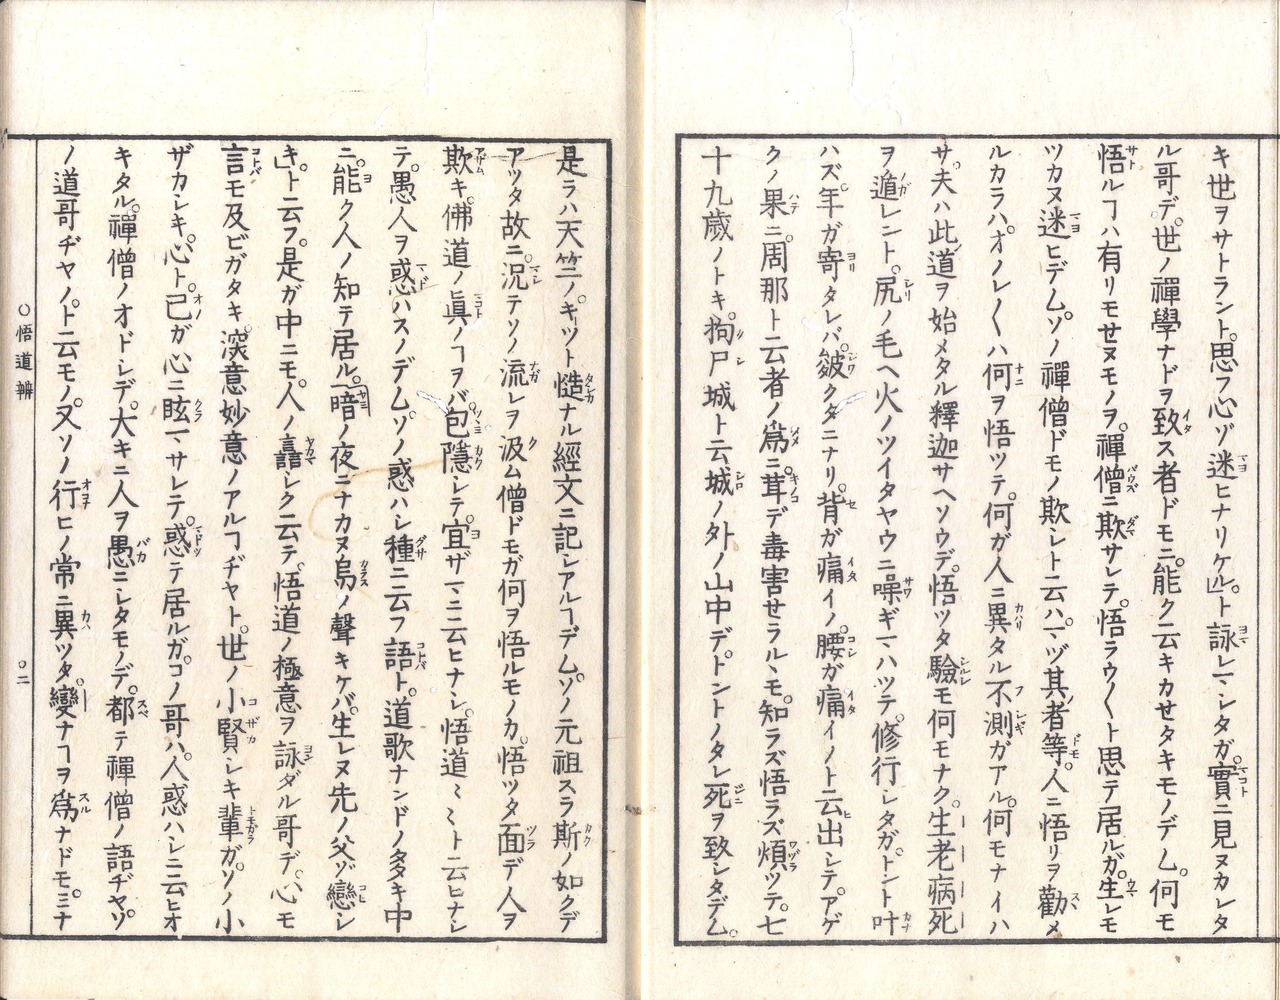 キ世ヲサトラント。思フ心ゾ迷ヒナリケル」ト詠レマシタガ。實ニ見ヌカレタ
ル哥デ。世ノ禪學ナドヲ致ス者ドモニ。能ク云キカせタキモノデム。何モ
悟ルヿハ有リモせヌモノヲ。禪僧ニ欺サレテ。悟ラウ〱ト思テ居ルガ。生レモ
ツカヌ迷ヒデム。ソノ禪僧ドモノ欺シト云ハ。マヅ其者等。人ニ悟リヲ勸メ
ルカラハ。オノレ〱ハ何ヲ悟ツテ。何ガ人ニ異タル不測ガアル。何モナイハ
サ。夫ハ此道ヲ始メタル釋迦サヘソウデ。悟ツタ驗モ何モナク。生老病死
ヲ遁レント。尻ノ毛ヘ火ノツイタヤウニ噪ギマハツテ。修行シタガ。トント叶
ハズ。年ガ寄タレバ。皴クタニナリ。背ガ痛イノ。腰ガ痛イノト云出シテ。アゲ
クノ果ニ。周那ト云者ノ爲ニ。茸デ毒害せラルヽモ。知ラズ悟ラズ。煩ツテ。七
十九歳ノトキ。拘尸城ト云城ノ外ノ山中デ。トントノタレ死ヲ致シタデム。
是ラハ天竺ノ。キツト慥ナル經文ニ記シアルヿデム。ソノ元祖スラ斯ノ如クデ
アツタ故ニ。况テソノ流レヲ汲ム僧ドモガ何ヲ悟ルモノカ。悟ツタ面デ人ヲ
欺キ。佛道ノ眞ノヿヲバ。包隱シテ。宜ザマニ云ヒナシ。悟道〻〻ト云ヒナシ
テ。愚人ヲ惑ハスノデム。ソノ惑ハシ種ニ云フ語ト。道歌ナンドノタキ中
ニ。能ク人ノ知テ居ル。「暗ノ夜ニナカヌ烏ノ聲キケバ。生レヌ先ノ父ゾ戀シ
キ」ト云フ。是ガ中ニモ。人ノ譶シク云テ。悟道ノ極意ヲ詠ダル哥デ。心モ
言モ及ビガタキ。深意妙意ノアルヿヂヤト。世ノ小賢シキ輩ガ。ソノ小
ザカシキ。心ト。己ガ心ニ眩マサレテ。惑テ居ルガ。コノ哥ハ。人惑ハシニ云ヒオ
キタル。禪僧ノオドシデ。大キニ人ヲ愚ニシタモノデ。都テ禪僧ノ語ヂヤゾ
ノ道哥ヂヤノ。ド云モノ。又ソノ行ヒノ常ニ異ツタ。變ナヿヲ爲ナドモ。ミナ
○悟道辨
○二